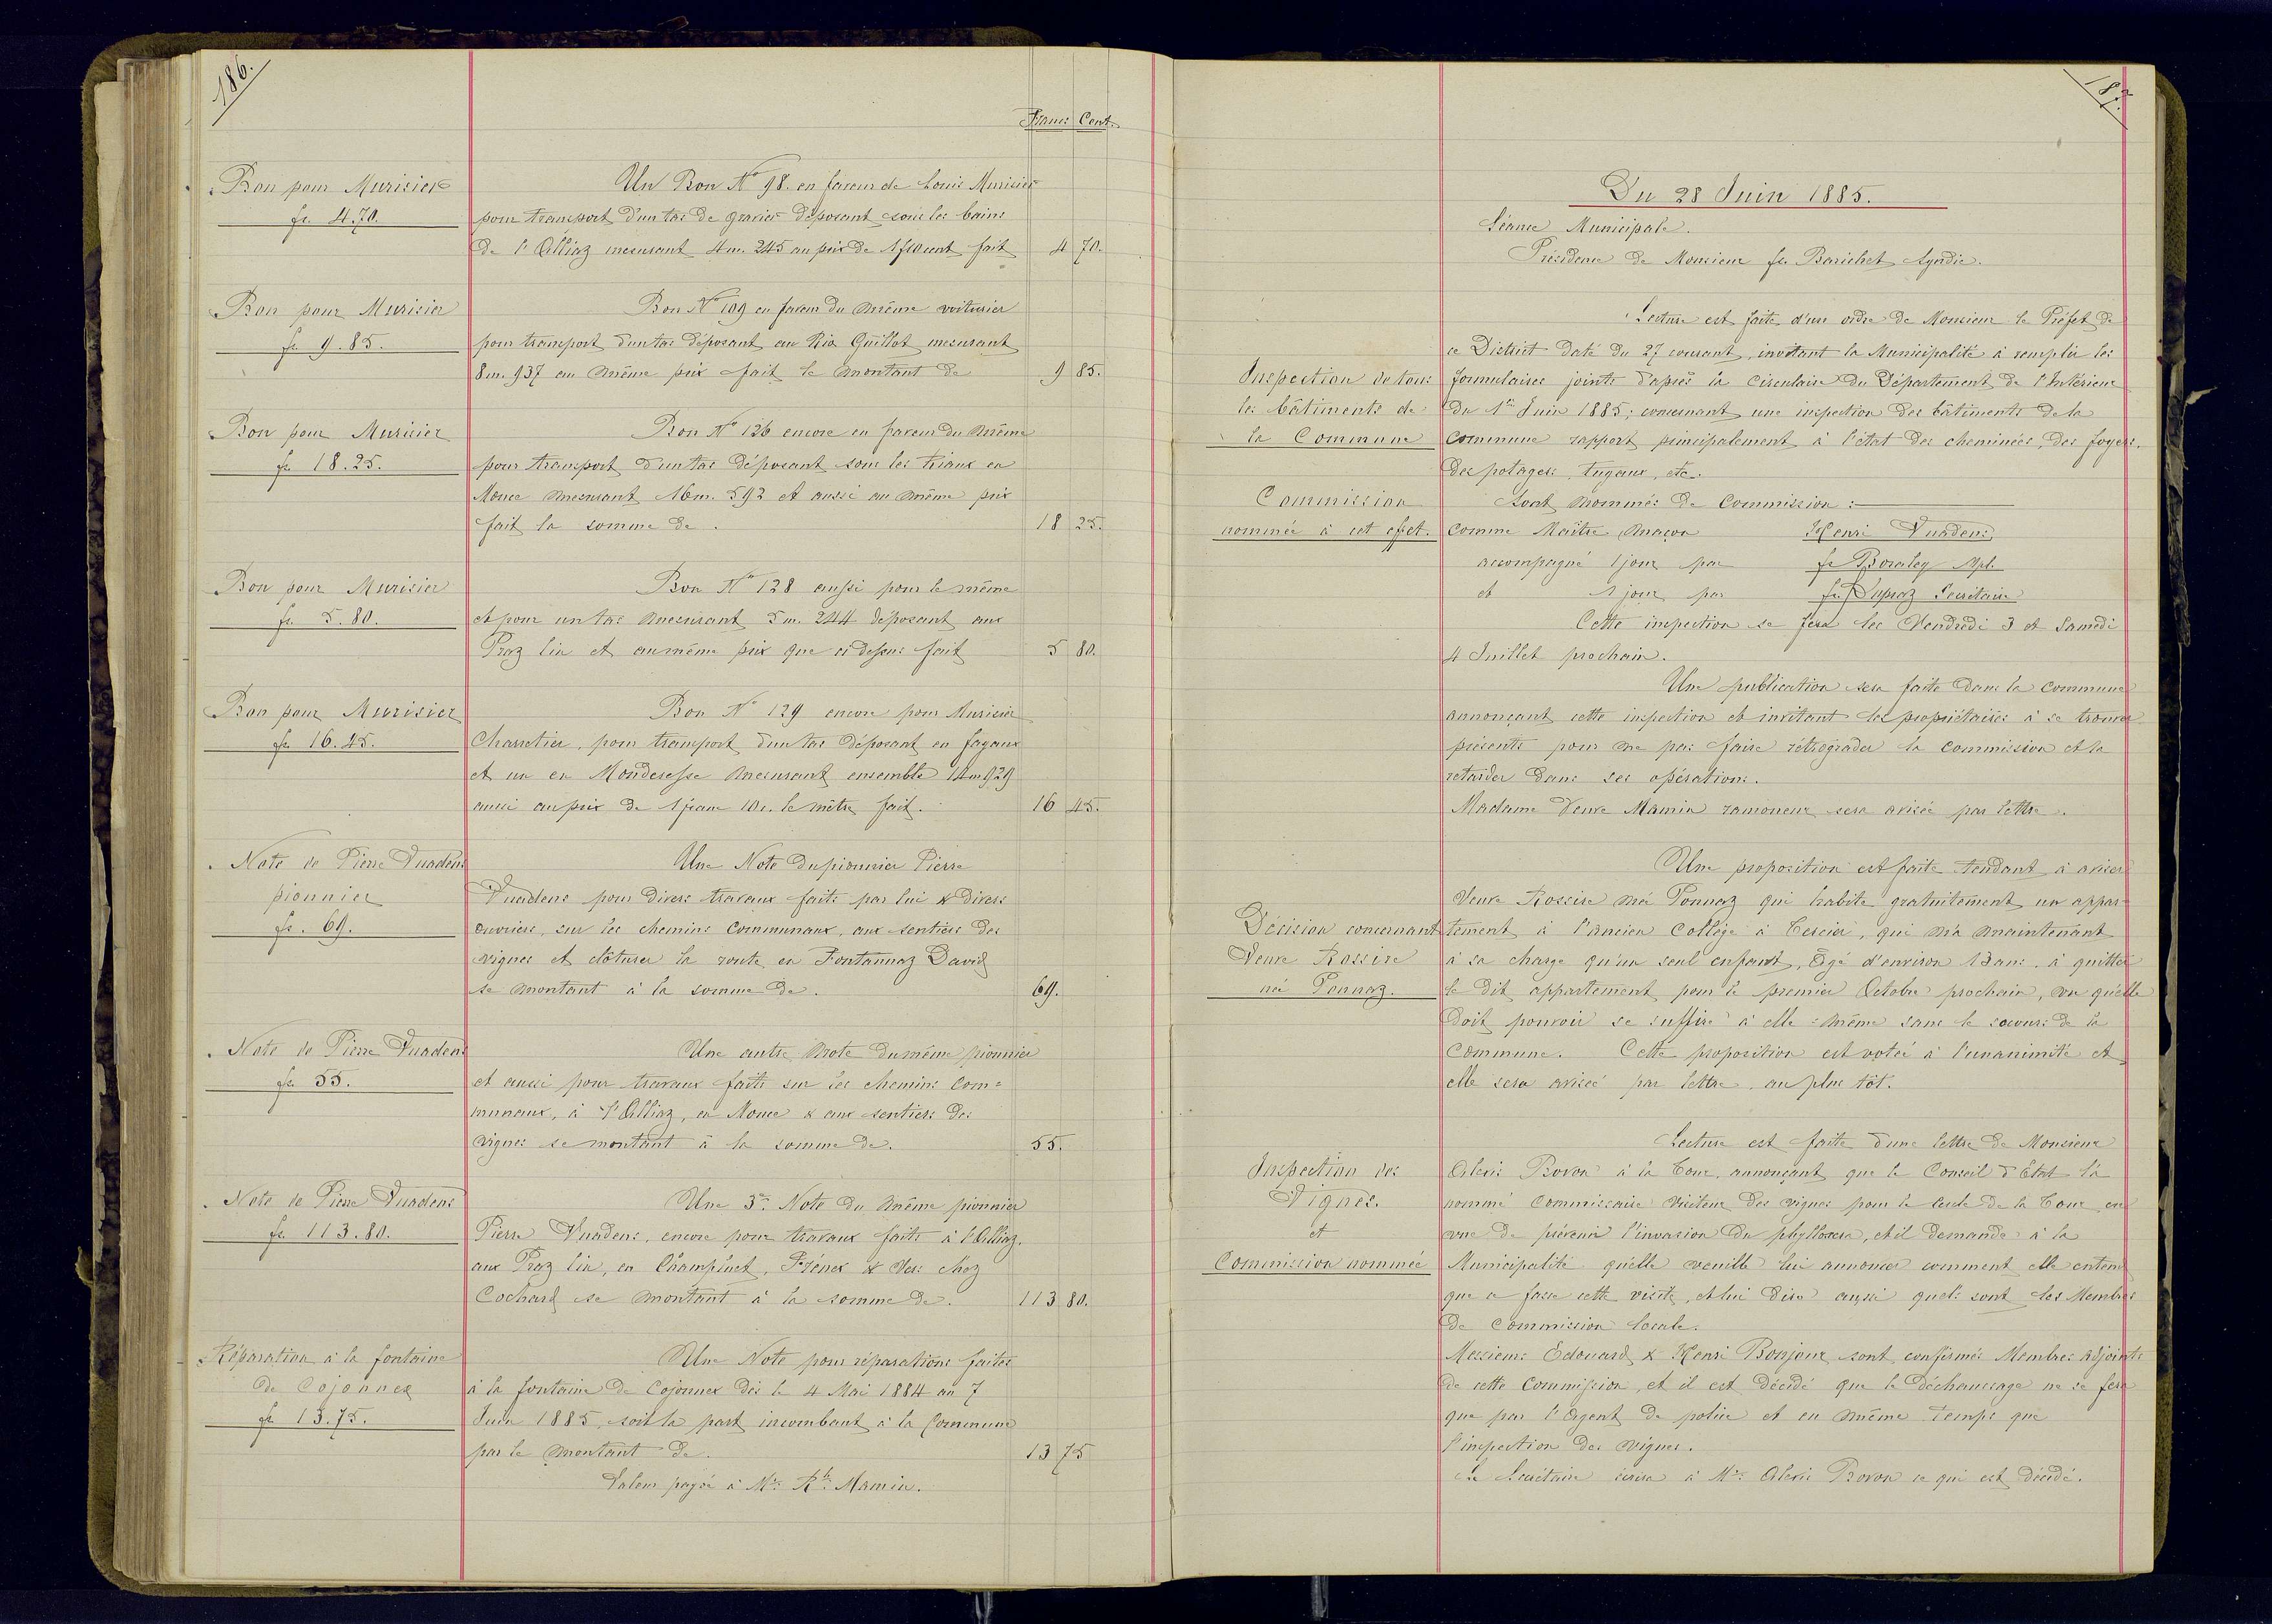 186.
Francs Cent.
Bon pour Murisier
fr. 4.70.
Un Bon No 98. en faveur de Louis Murisier
pour transport d'un tas de gravier déposant sous les bains
de l'Alliaz mesurant 4 m. 245 au prix de 1 fr 10 cent fait 4 70.
Bon pour Murisier
fr. 9.85.
Bon No 109 en faveur du même voiturier
pour transport d'un tas déposant au Rio Guillot mesurant
8 m. 937 au même prix fait le montant de 9 85.
Bon pour Murisier
fr. 18.25.
Bon No 126 encore en faveur du même
pour transport d'un tas déposant sous les Friaux en
Mouce mesurant 16 m. 592 et aussi au même prix
fait la somme de . 18 25.
Bon pour Murisier
fr. 5.80.
Bon No 128 aussi pour le même
et pour un tas mesurant 5 m. 244 déposant aux
Praz lin et au même prix que ci dessus fait 5 80.
Bon pour Murisier
fr. 16.45.
Bon No 129 encore pour Murisier
Charretier, pour transport d'un tas déposant en fayaux
et un en Monderesse mesurant ensemble 14 m 929
aussi au prix de 1 franc 10 c. le mètre fait. 16 45.
Note de Pierre Vuadens
pionnier
fr. 69.
Une Note du pionnier Pierre
Vuadens pour divers travaux faits par lui & divers
ouvriers, sur les chemins communaux, aux sentiers des
vignes et clôturer la route en Fontannaz David
se montant à la somme de. 69.
Note de Pierre Vuadens
fr. 55.
Une autre Note du même pionnier
et aussi pour travaux faits sur les chemins com=
munaux, à l'Alliaz, en Mouce & aux sentiers des
vignes se montant à la somme de. 55.
Note de Pierre Vuadens
fr. 113.80.
Une 3me Note du même pionnier
Pierre Vuadens, encore pour travaux faits à l'Alliaz,
aux Praz lin, en Champluet, Frénex & Vers chez
Cochard se montant à la somme de. 113 80.
Réparation à la fontaine
de Cojonnex
fr. 13.75.
Une Note pour réparations faites
à la fontaine de Cojonnex dès le 4 Mai 1884 au 7
Juin 1885, soit la part incombant à la Commune
par le montant de. 13 75
Valeur payée à Mr. Rh. Mamin.
187.
Du 28 Juin 1885.
Séance Municipale.
Présidence de Monsieur fs. Barichet Syndic.
Lecture est faite d'un ordre de Monsieur le Préfet de
ce District daté du 27 courant, invitant la Municipalité à remplir les
Inspection de tous
les bâtiments de
la Commune
formulaires joints d'après la circulaire du Département de l'Intérieur
du 1er Juin 1885; concernant une inspection des bâtiments de la
commune rapport principalement à l'état des cheminées, des foyers,
des potagers, tuyaux, etc.
Commission
nommée à cet effet.
Sont nommés de Commission :
comme Maître maçon Henri Vuadens
accompagné 1 jour par fs Boraley Mpl.
et 1 jour par fs. Dupraz Secrétaire
Cette inspection se fera les Vendredi 3 et Samedi
4 Juillet prochain.
Une publication sera faite dans la commune
annonçant cette inspection et invitant les propriétaires à se trouver
présents pour ne pas faire rétrograder la commission et la
retarder dans ses opérations.
Madame Veuve Mamin ramoneur sera avisée par lettre.
Décision concernant
Veuve Rossire
née Ponnaz.
Une proposition est faite tendant à aviser
Veuve Rossire née Ponnaz qui habite gratuitement un appar=
tement à l'ancien Collège à Cercier, qui n'a maintenant
à sa charge qu'un seul enfant, âgé d'environ 13 ans, à quitter
le dit appartement pour le premier Octobre prochain, vu qu'elle
doit pouvoir se suffire à elle=même sans le secours de la
Commune. Cette proposition est votée à l'unanimité et
elle sera avisée par lettre, au plus tôt.
Inspection des
Vignes.
et
Commission nommée
Lecture est faite d'une lettre de Monsieur
Alexis Bovon à la Tour, annonçant que le Conseil d'Etat l'a
nommé commissaire visiteur des vignes pour le Cercle de la Tour, en
vue de prévenir l'invasion du phylloxera, et il demande à la
Municipalité qu'elle veuille lui annoncer comment elle entend
que se fasse cette visite, et lui dire aussi quels sont les Membres
de Commission locale.
Messieurs Edouard & Henri Bonjour sont confirmés Membres adjoints
de cette Commission, et il est décidé que le déchaussage ne se fera
que par l'agent de police et en même temps que
l'inspection des vignes.
Le Secrétaire écrira à Mr. Alexis Bovon ce qui est décidé.